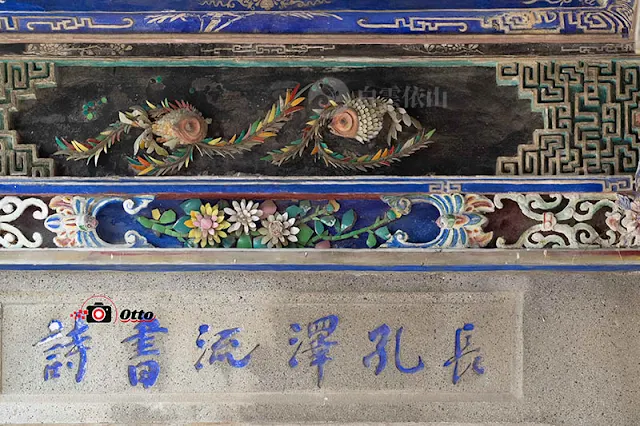 白雲依山
Otto
詩書流澤孔長